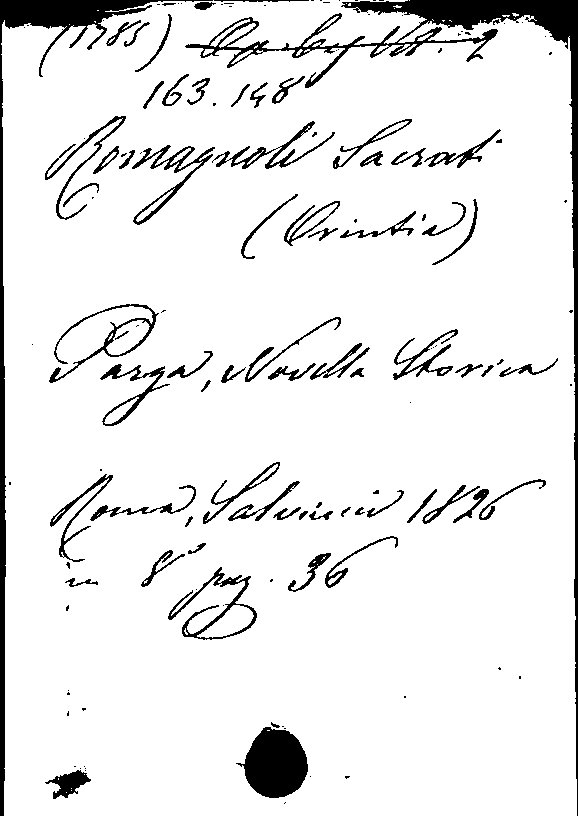 (1785)
163.148
Romagnoli Sacrati
(Orintia)
Parga, Novella Storica
Roma, Salviucci 1826
in 8° pag. 36